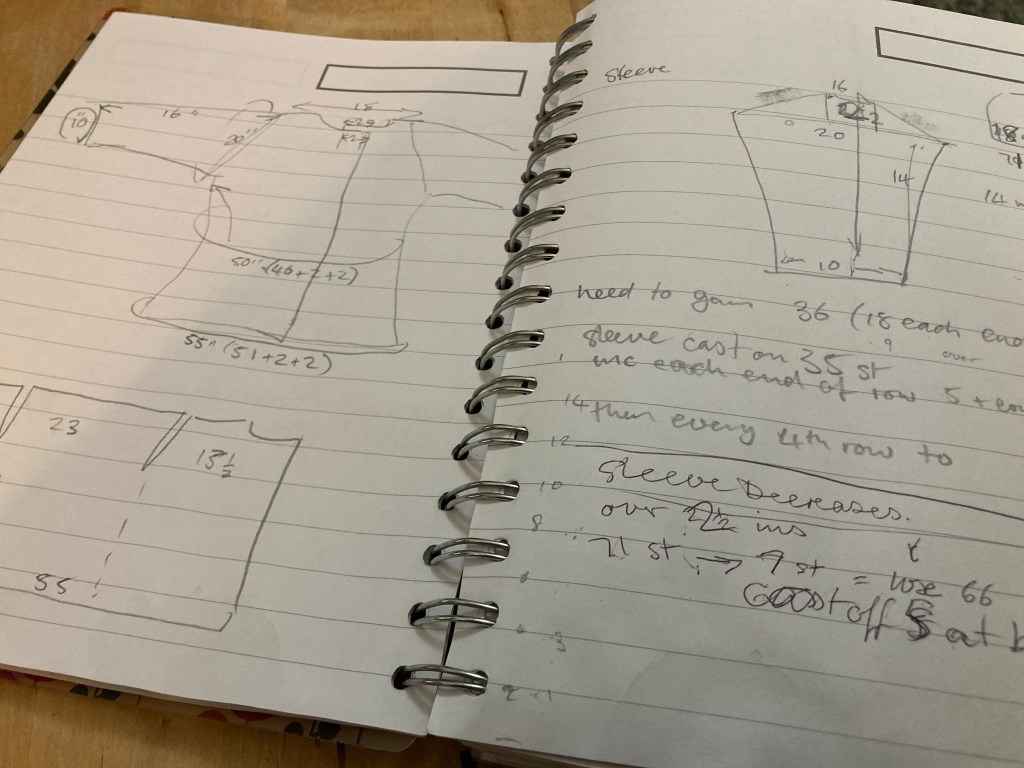 18
16"
10"
20"
50" (46+2+2)
55" (51+2+2)
23
13½
55
sleeve
16
20
14
10
need to gain 36 (18 each end
9 over
sleeve cast on 35 st
inc each end of row 5 +
14 then every 4th row to
12
10
8
sleeve Decreases.
over 2½ ins
71 st → 9 st = lose 66
Cast off 5 at b